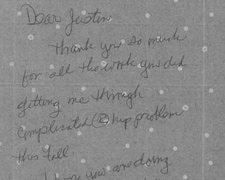 Dear Justin
Thank you so much
for all the work you did
getting me through
Complicated (R) hip problem
this fall.
I hope you are doing